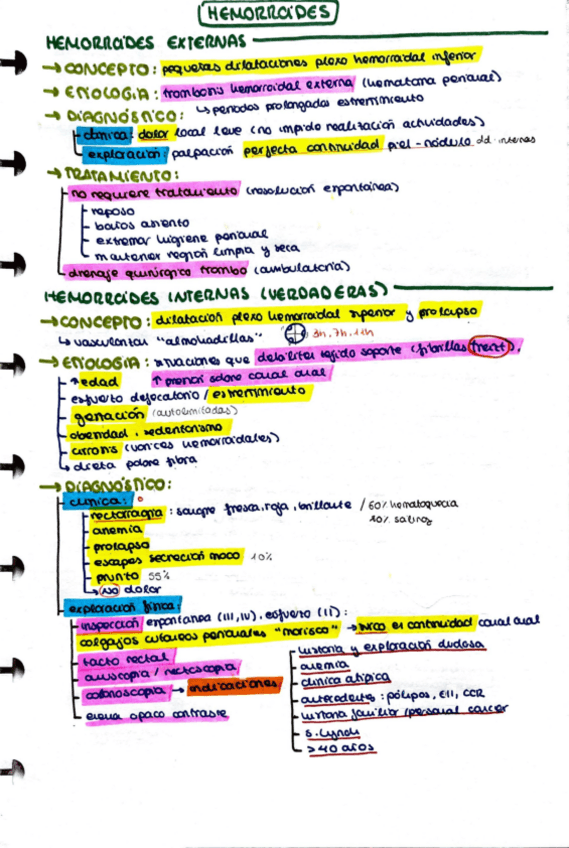 HEMORROIDES
HEMORROIDES EXTERNAS
→ CONCEPTO: pequeñas dilataciones plexo hemorroidal inferior
→ ETIOLOGIA: trombosis hemorroidal externa (hematoma perianal)
↳ periodos prolongados estreñimiento
→ DIAGNÓSTICO:
clínica: dolor local leve (no impide realización actividades)
exploración: palpación perfecta continuidad piel-nódulo dd-internas
→ TRATAMIENTO:
no requiere tratamiento (resolución espontánea)
reposo
baños asiento
extremar higiene perianal
mantener región limpia y seca
drenaje quirúrgico trombo (ambulatoria)
HEMORROIDES INTERNAS (VERDADERAS)
→ CONCEPTO: dilatación plexo hemorroidal superior y prolapso
↳ vascularizan "almohadillas" 3h, 7h, 11h
→ ETIOLOGIA: situaciones que debiliten tejido soporte (fibrillas Treitz),
↑ presión sobre canal anal
↑ edad
esfuerzo defecatorio / estreñimiento
gestación (autolimitadas)
obesidad, sedentarismo
cirrosis (varices hemorroidales)
dieta pobre fibra
→ DIAGNÓSTICO:
clínica:
rectorragia: sangre fresca, roja, brillante / 60% hematoquecia
anemia
prolapso
escapes secreción moco 10%
prurito 55%
NO dolor
exploración física:
inspección espontánea (III, IV), esfuerzo (II):
colgajos cutáneos perianales "marisco" → NO es continuidad canal anal
tacto rectal
anuscopia / rectoscopia
colonoscopia → indicaciones
historia y exploración dudosa
anemia
clínica atípica
antecedentes: pólipos, EII, CCR
historia familiar/personal cáncer
s. Lynch
>40 años
enema opaco contraste